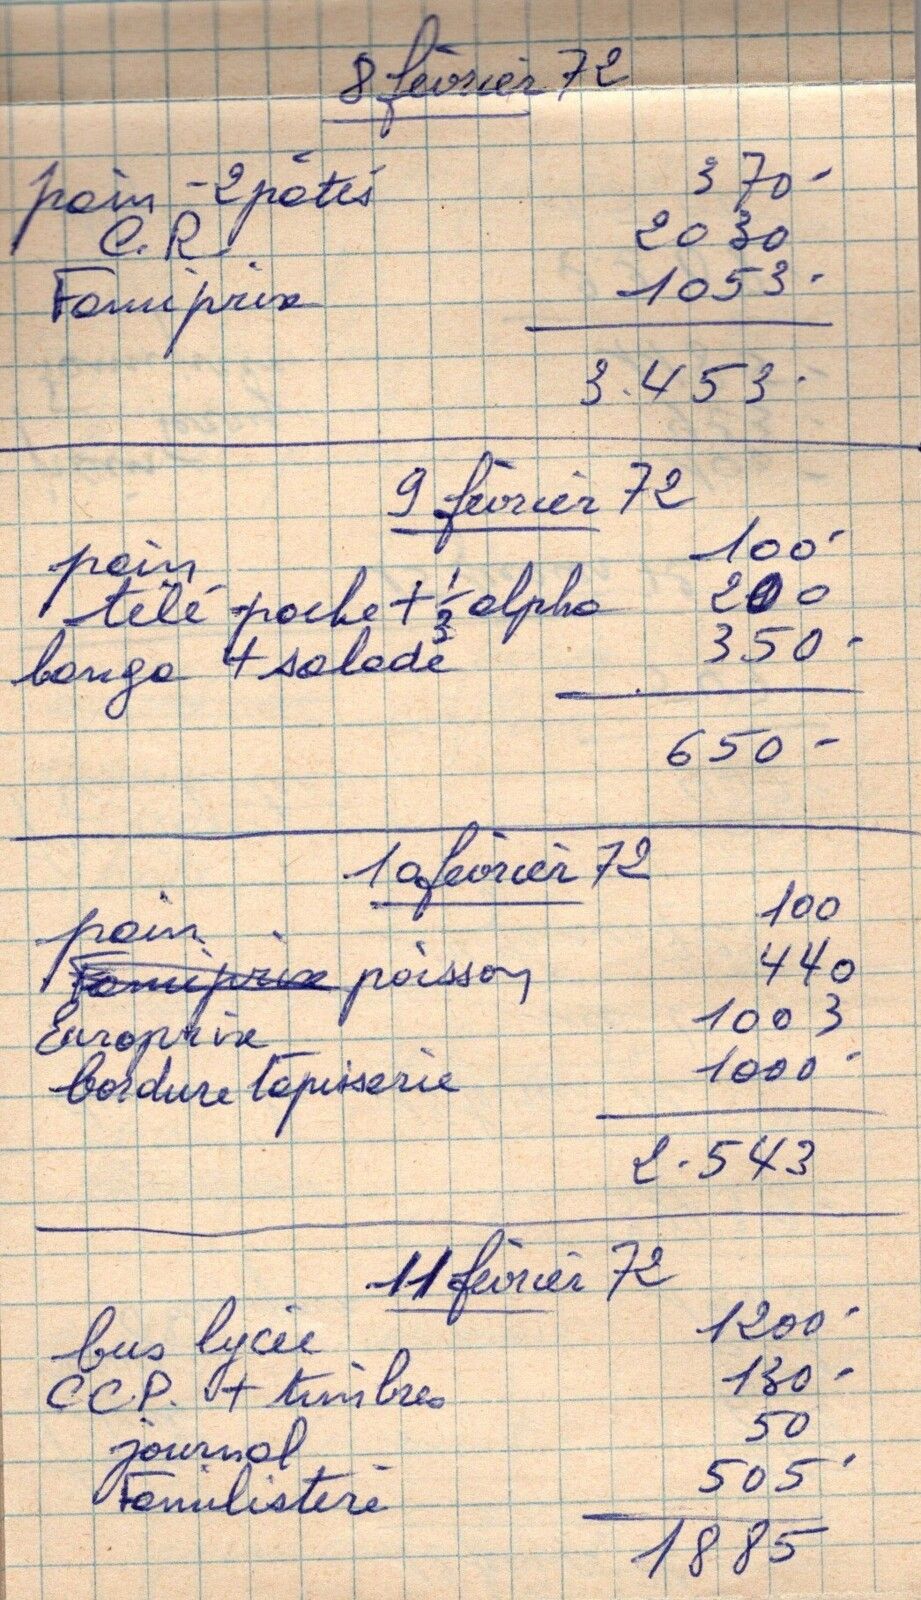 8 février 72
pain - 2 pâtés 370-
C.R. 2030
Famiprix 1053-
3.453-
9 février 72
pain 100-
télé poche + 1/2 alpha 200
banga + salade 350-
650-
10 février 72
pain 100
Famiprix poisson 440
Europrix 1003
bordure tapisserie 1000-
2.543
11 février 72
bus lycée 1200-
C.C.P. + timbres 130-
journal 50
Familistère 505-
1885